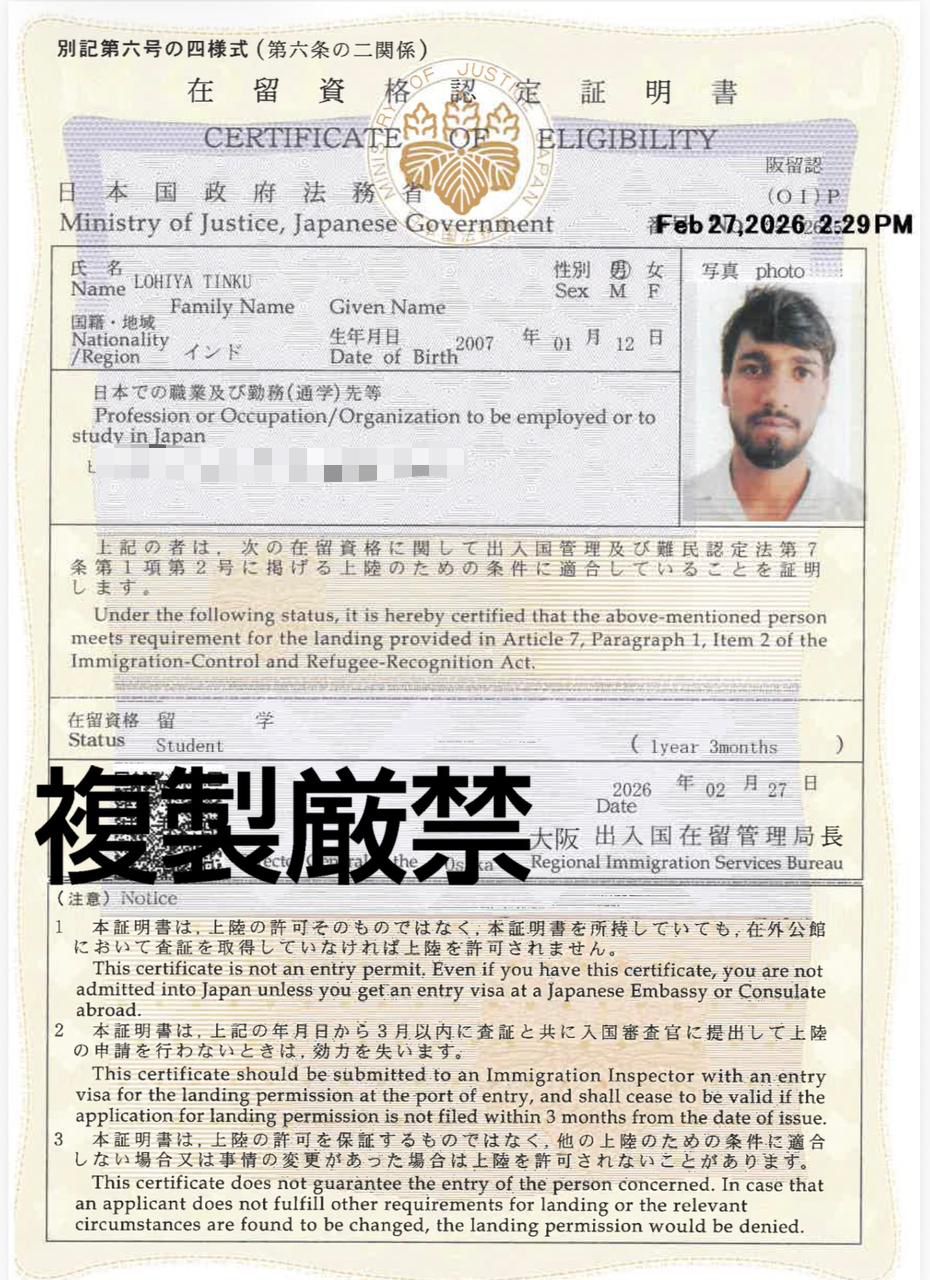 別記第六号の四様式(第六条の二関係)
在留資格認定証明書
CERTIFICATE OF ELIGIBILITY
MINISTRY OF JUSTICE JAPAN
阪留認
日本国政府法務省
(OI)P
Ministry of Justice, Japanese Government
Feb 27,2026 2:29 PM
氏名
Name LOHIYA TINKU
性別 男 女
Sex M F
Family Name Given Name
国籍・地域
Nationality
/Region インド
生年月日
Date of Birth 2007 年 01 月 12 日
写真 photo
日本での職業及び勤務(通学)先等
Profession or Occupation/Organization to be employed or to
study in Japan
上記の者は, 次の在留資格に関して出入国管理及び難民認定法第7
条第1項第2号に掲げる上陸のための条件に適合していることを証明
します。
Under the following status, it is hereby certified that the above-mentioned person
meets requirement for the landing provided in Article 7, Paragraph 1, Item 2 of the
Immigration-Control and Refugee-Recognition Act.
在留資格 留 学
Status Student
( 1year 3months )
2026 年 02 月 27 日
Date
複製厳禁
大阪 出入国在留管理局長
Regional Immigration Services Bureau
(注意) Notice
1 本証明書は, 上陸の許可そのものではなく, 本証明書を所持していても, 在外公館
において査証を取得していなければ上陸を許可されません。
This certificate is not an entry permit. Even if you have this certificate, you are not
admitted into Japan unless you get an entry visa at a Japanese Embassy or Consulate
abroad.
2 本証明書は, 上記の年月日から3月以内に査証と共に入国審査官に提出して上陸
の申請を行わないときは, 効力を失います。
This certificate should be submitted to an Immigration Inspector with an entry
visa for the landing permission at the port of entry, and shall cease to be valid if the
application for landing permission is not filed within 3 months from the date of issue.
3 本証明書は, 上陸の許可を保証するものではなく, 他の上陸のための条件に適合
しない場合又は事情の変更があった場合は上陸を許可されないことがあります。
This certificate does not guarantee the entry of the person concerned. In case that
an applicant does not fulfill other requirements for landing or the relevant
circumstances are found to be changed, the landing permission would be denied.